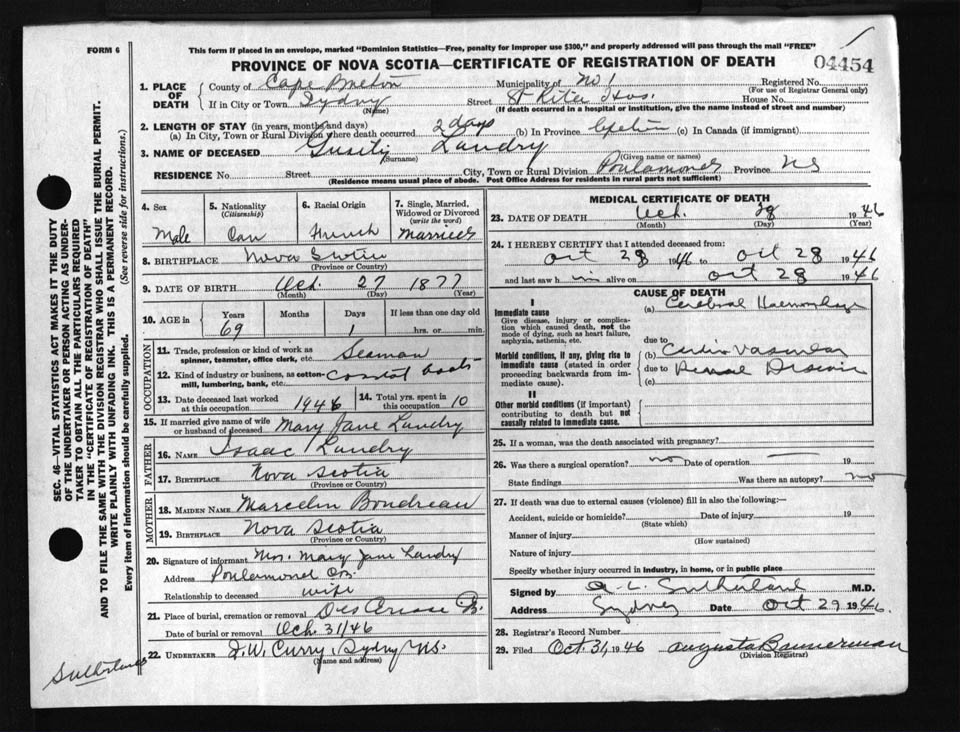 FORM 6
This form if placed in an envelope, marked "Dominion Statistics—Free, penalty for improper use $300," and properly addressed will pass through the mail "FREE"
PROVINCE OF NOVA SCOTIA—CERTIFICATE OF REGISTRATION OF DEATH
04454
1. PLACE OF DEATH
County of Cape Breton Municipality of No 1 Registered No.
(For use of Registrar General only)
If in City or Town Sydney Street St Rita Hos. House No.
(Name) (If death occurred in a hospital or institution, give the name instead of street and number)
2. LENGTH OF STAY (in years, months and days)
(a) In City, Town or Rural Division where death occurred 2 days (b) In Province (c) In Canada (if immigrant)
3. NAME OF DECEASED Landry
(Surname) (Given name or names)
RESIDENCE No. Street City, Town or Rural Division Poulamond Province NS
(Residence means usual place of abode. Post Office Address for residents in rural parts not sufficient)
4. Sex
Male
5. Nationality
(Citizenship)
Can
6. Racial Origin
French
7. Single, Married, Widowed or Divorced
(write the word)
Married
8. BIRTHPLACE Nova Scotia
(Province or Country)
9. DATE OF BIRTH Oct. 27 1877
(Month) (Day) (Year)
10. AGE in
Years Months Days If less than one day old
69 1 hrs. or min.
OCCUPATION
11. Trade, profession or kind of work as spinner, teamster, office clerk, etc. Seaman
12. Kind of industry or business, as cotton-mill, lumbering, bank, etc. Coastal boats
13. Date deceased last worked at this occupation 1946
14. Total yrs. spent in this occupation 10
15. If married give name of wife or husband of deceased Mary Jane Landry
FATHER
16. Name Isaac Landry
17. Birthplace Nova Scotia
(Province or Country)
MOTHER
18. MAIDEN NAME Marcelin Boudreau
19. BIRTHPLACE Nova Scotia
(Province or Country)
20. Signature of informant Mrs. Mary Jane Landry
Address Poulamond CB.
Relationship to deceased wife
21. Place of burial, cremation or removal
Date of burial or removal Oct. 31/46
22. UNDERTAKER J.W. Curry, Sydney NS.
(Name and address)
MEDICAL CERTIFICATE OF DEATH
23. DATE OF DEATH Oct. 28 1946
(Month) (Day) (Year)
24. I HEREBY CERTIFY that I attended deceased from:
Oct 28 1946 to Oct 28 1946
and last saw h im alive on Oct 28 1946
CAUSE OF DEATH
I
Immediate cause
Give disease, injury or complication which caused death, not the mode of dying, such as heart failure, asphyxia, asthenia, etc.
(a) Cerebral Haemorrhage
due to
Morbid conditions, if any, giving rise to immediate cause (stated in order proceeding backwards from immediate cause).
(b) Cardio Vascular
due to Renal Disease
(c)
II
Other morbid conditions (if important) contributing to death but not causally related to immediate cause.
25. If a woman, was the death associated with pregnancy?
26. Was there a surgical operation? no Date of operation 19
State findings Was there an autopsy? no
27. If death was due to external causes (violence) fill in also the following:—
Accident, suicide or homicide? Date of injury 19
(State which)
Manner of injury
(How sustained)
Nature of injury
Specify whether injury occurred in industry, in home, or in public place
Signed by A. L. Sutherland M.D.
Address Sydney Date Oct 29 1946.
28. Registrar's Record Number
29. Filed Oct. 31, 1946 Augusta Bannerman
(Division Registrar)
Sutherland
SEC. 46—VITAL STATISTICS ACT MAKES IT THE DUTY
OF THE UNDERTAKER OR PERSON ACTING AS UNDER-
TAKER TO OBTAIN ALL THE PARTICULARS REQUIRED
IN THE "CERTIFICATE OF REGISTRATION OF DEATH"
AND TO FILE THE SAME WITH THE DIVISION REGISTRAR WHO SHALL ISSUE THE BURIAL PERMIT.
WRITE PLAINLY WITH UNFADING INK. THIS IS A PERMANENT RECORD.
Every item of information should be carefully supplied. (See reverse side for instructions.)